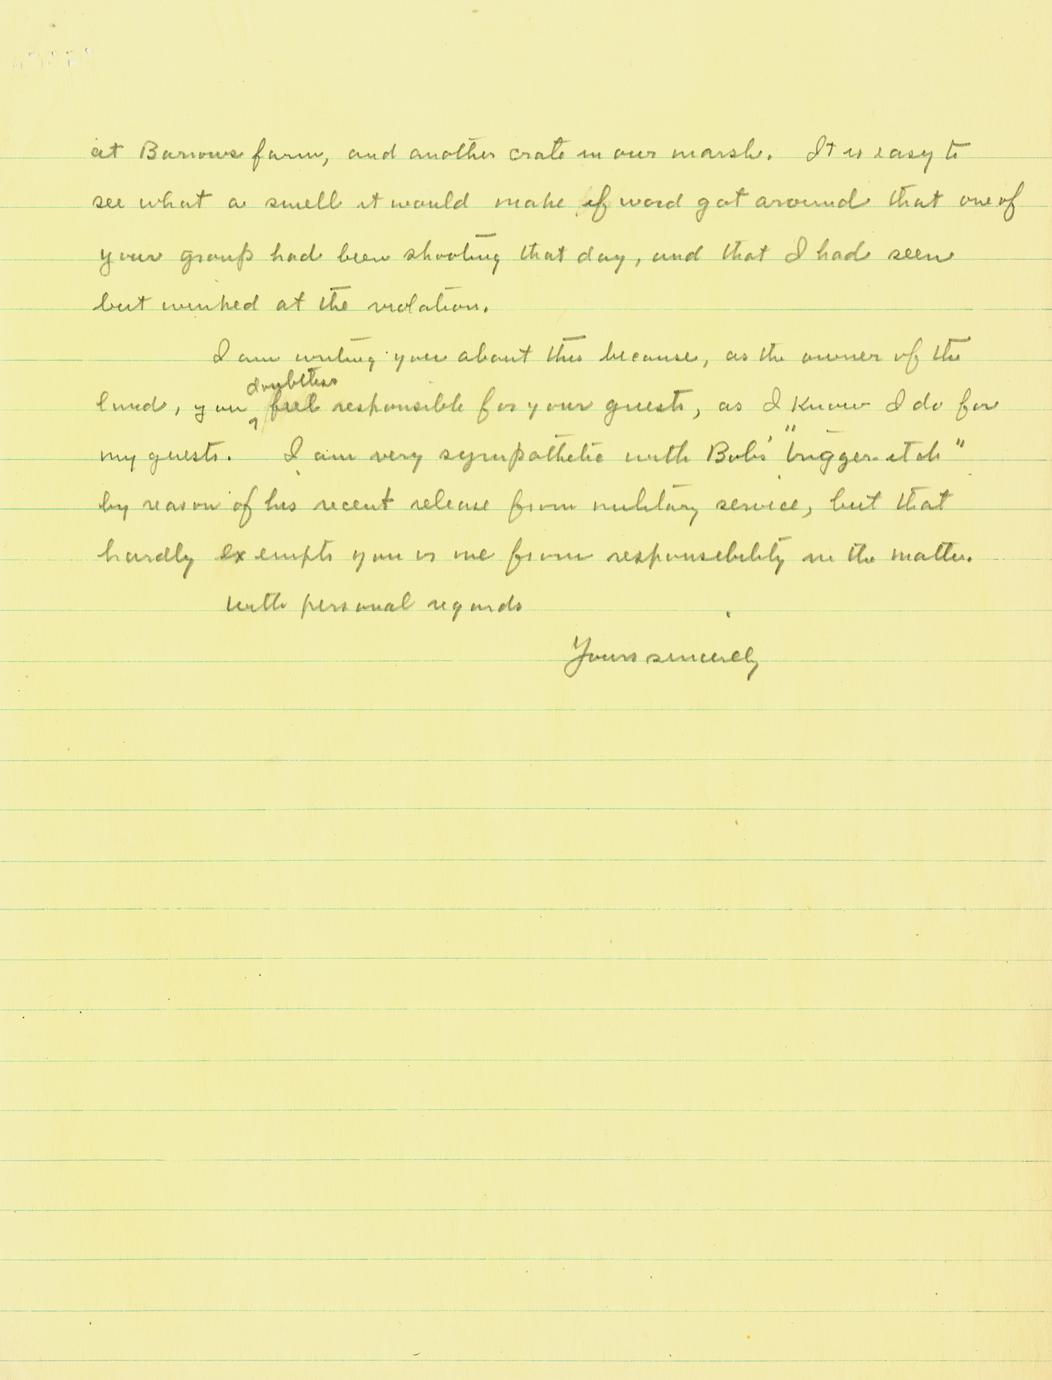 at Barrows farm, and another crate in our marsh. It is easy to
see what a smell it would make if word got around that one of
your group had been shooting that day, and that I had seen
but winked at the violation.
I am writing you about this because, as the owner of the
doubtless
land, you feel responsible for your guests, as I know I do for
my guests. I am very sympathetic with Bob's "trigger-itch"
by reason of his recent release from military service, but that
hardly exempts you or me from responsibility in the matter.
With personal regards
Yours sincerely